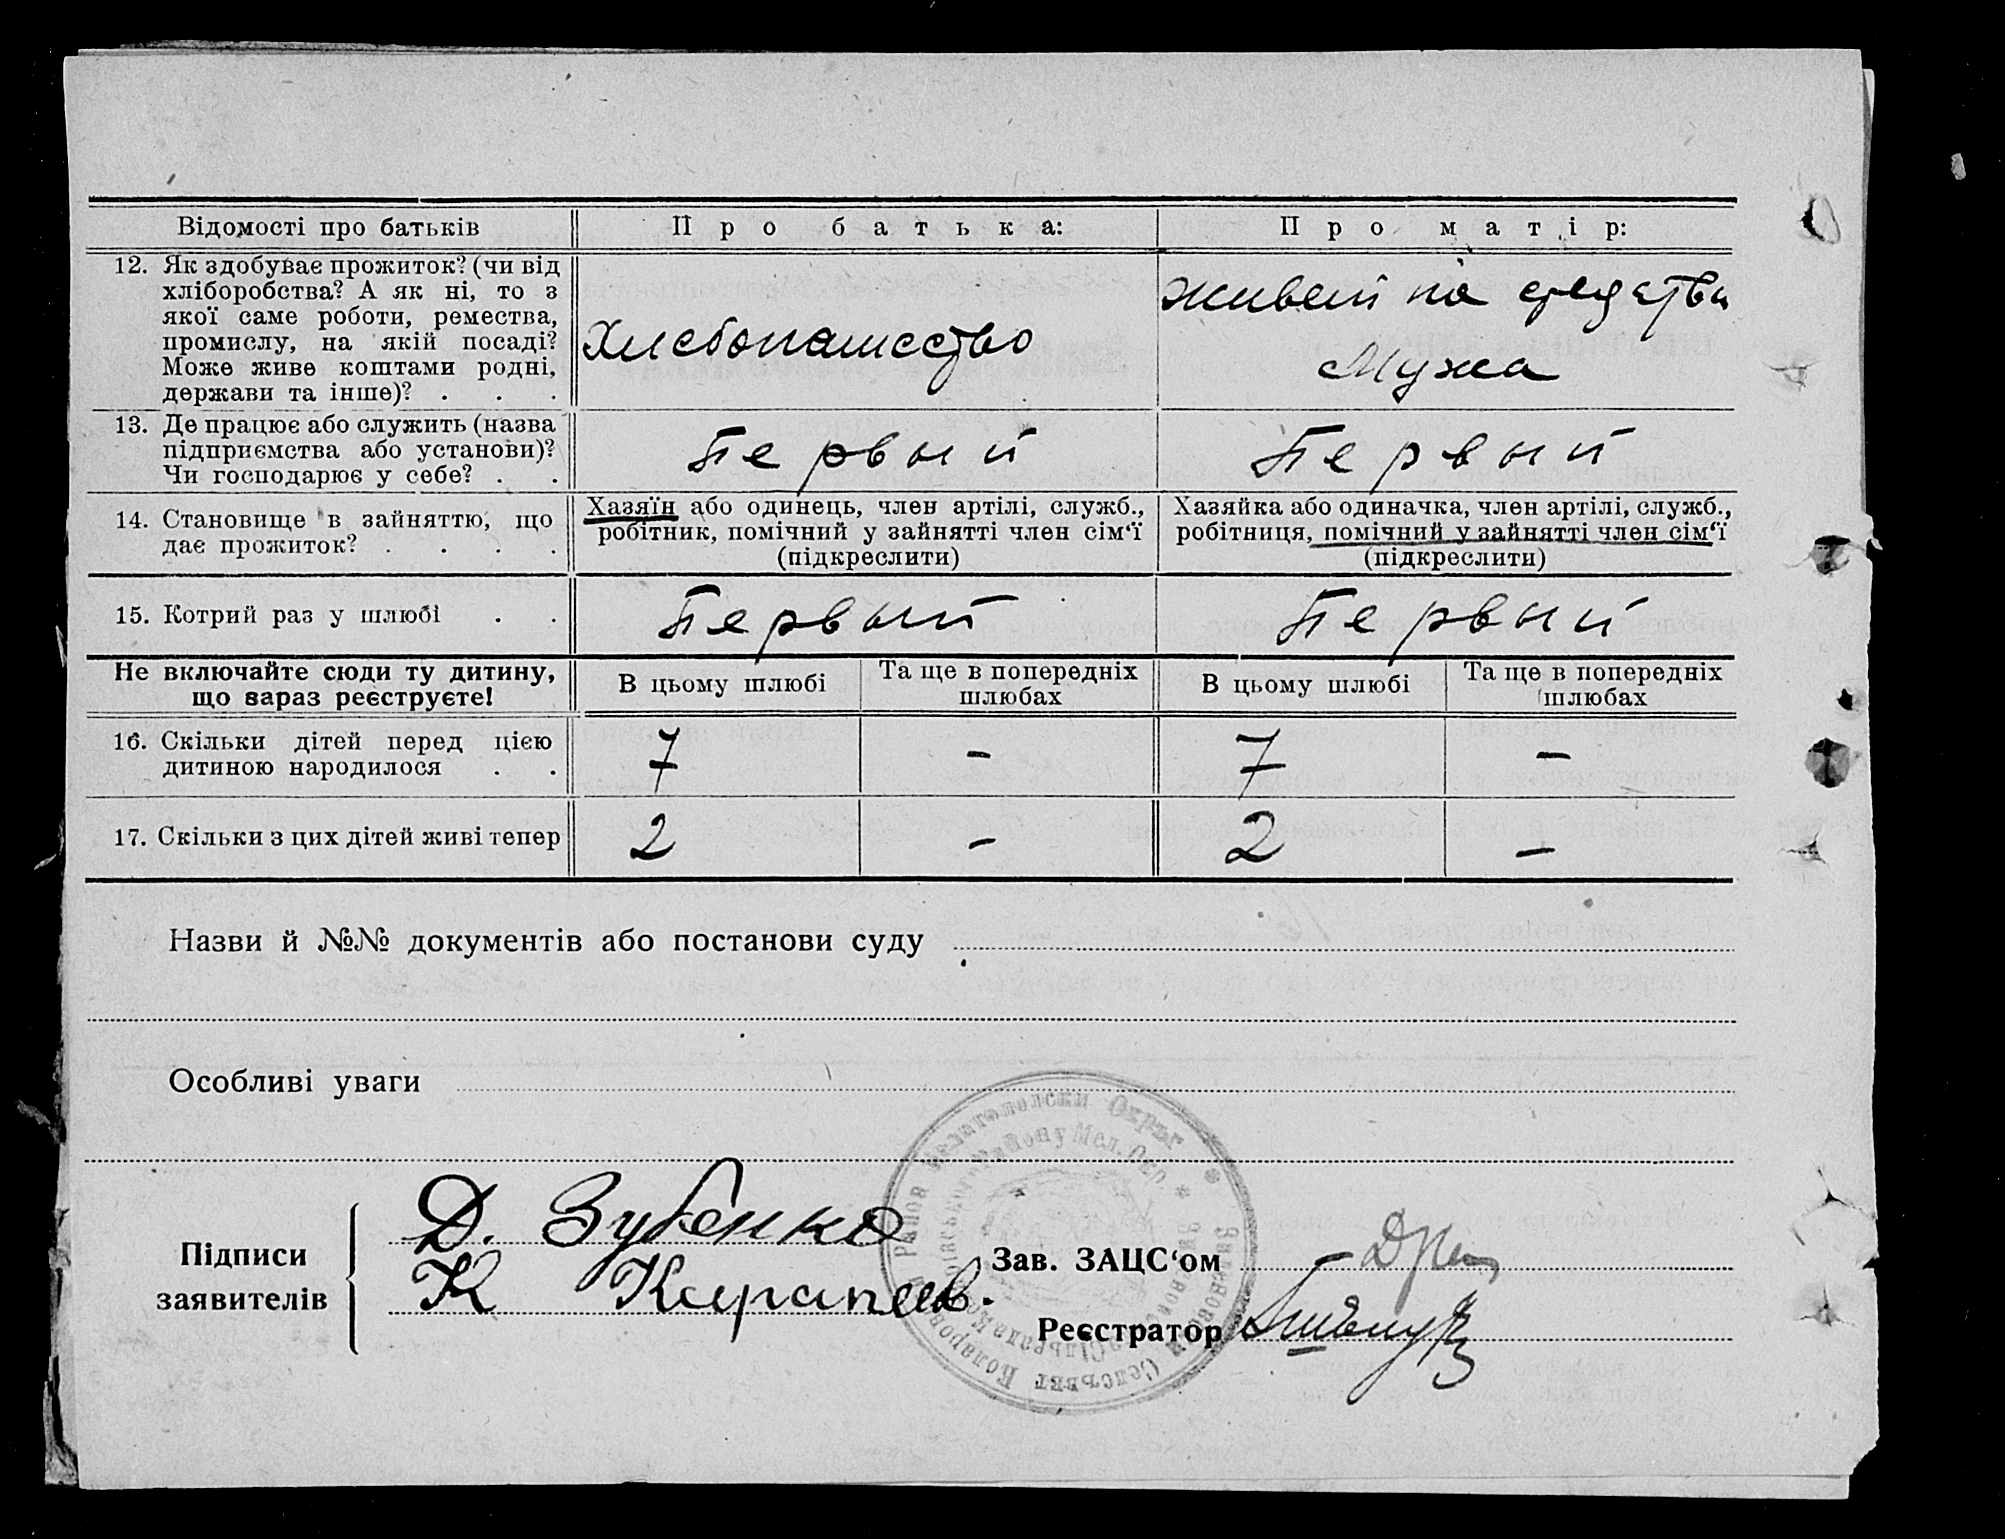 Відомості про батьків
Про батька:
Про матір:
12. Як здобуває прожиток? (чи від
хліборобства? А як ні, то з
якої саме роботи, ремества,
промислу, на якій посаді?
Може живе коштами родні,
держави та інше)? . . .
Хлебопашество
живет на средства
Мужа
13. Де працює або служить (назва
підприємства або установи)?
Чи господарює у себе? . .
Первый
Первый
14. Становище в зайняттю, що
дає прожиток? . . . .
Хазяїн або одинець, член артілі, служб.,
робітник, помічний у зайнятті член сім‘ї
(підкреслити)
Хазяйка або одиначка, член артілі, служб.,
робітниця, помічний у зайнятті член сім‘ї
(підкреслити)
15. Котрий раз у шлюбі . .
Первый
Первый
Не включайте сюди ту дитину,
що зараз реєструєте!
В цьому шлюбі
Та ще в попередніх
шлюбах
В цьому шлюбі
Та ще в попередніх
шлюбах
16. Скільки дітей перед цією
дитиною народилося . .
7
–
7
–
17. Скільки з цих дітей живі тепер
2
–
2
–
Назви й №№ документів або постанови суду
Особливі уваги
Підписи
заявителів
Д. Зубенко
К Карапеев.
Зав. ЗАЦС‘ом
Реєстратор